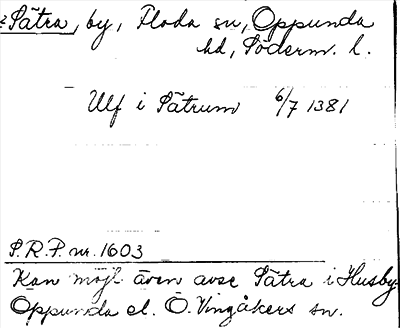 Sätra, by, Floda sn, Oppunda
hd, Söderm. l.
Ulf i Sätrum 6/7 1381
S.R.P. nr. 1603
Kan möjl. även avse Sätra i Husby-
Oppunda el. Ö. Vingåkers sn.